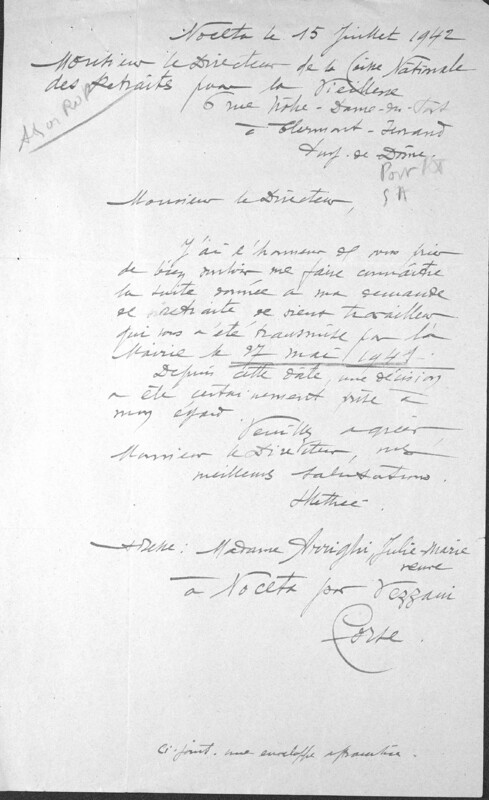 Noceta le 15 Juillet 1942
Monsieur le Directeur de la Caisse Nationale
des Retraits pour la Vieillesse
6 rue Notre-Dame-du-Port
à Clermont-Ferrand
Puy-de Dôme
Monsieur le Directeur,
J'ai l'honneur de vous prier
de bien vouloir me faire connaître
la suite donnée à ma demande
de retraite de vieux travailleur
qui vous a été transmise par la
Mairie le 27 mai 1941.
Depuis cette date, une décision
a été certainement prise à
mon égard.
Veuillez agréer
Monsieur le Directeur, mes
meilleures salutations.
Adresse: Madame Arrighi Julie-Marie
veuve
à Noceta par Vezzani
Corse.
Ci-joint une enveloppe affranchie.